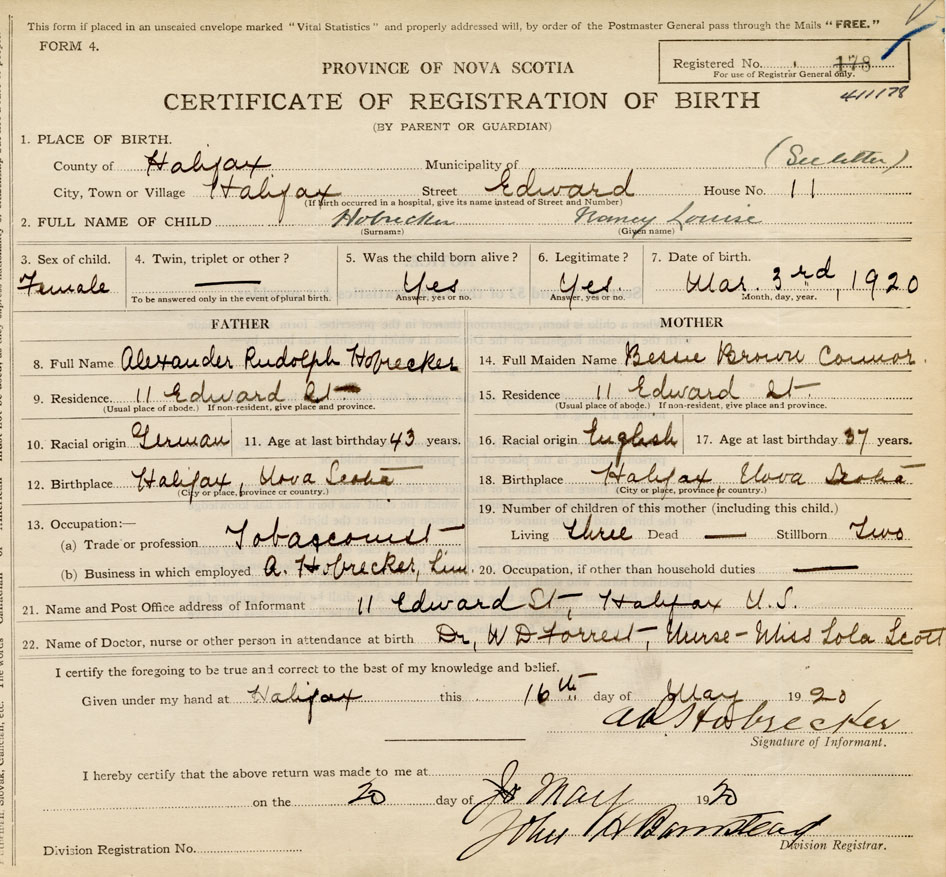 This form if placed in an unsealed envelope marked "Vital Statistics" and properly addressed will, by order of the Postmaster General pass through the Mails "FREE."
FORM 4.
Registered No. 178
For use of Registrar General only.
411178
PROVINCE OF NOVA SCOTIA
CERTIFICATE OF REGISTRATION OF BIRTH
(BY PARENT OR GUARDIAN)
1. PLACE OF BIRTH.
County of Halifax Municipality of (See letter)
City, Town or Village Halifax Street Edward House No. 11
(If birth occurred in a hospital, give its name instead of Street and Number)
2. FULL NAME OF CHILD Hobrecker Nancy Louise
(Surname) (Given name)
3. Sex of child. 4. Twin, triplet or other? 5. Was the child born alive? 6. Legitimate? 7. Date of birth.
Female — Yes Yes. Mar. 3rd, 1920
To be answered only in the event of plural birth. Answer, yes or no. Answer, yes or no. Month, day, year.
FATHER MOTHER
8. Full Name Alexander Rudolph Hobrecker 14. Full Maiden Name Bessie Brown Connor.
9. Residence. 11 Edward St 15. Residence 11 Edward St.
(Usual place of abode.) If non-resident, give place and province. (Usual place of abode.) If non-resident, give place and province.
10. Racial origin German 11. Age at last birthday 43 years. 16. Racial origin English 17. Age at last birthday 37 years.
12. Birthplace Halifax, Nova Scotia 18. Birthplace Halifax Nova Scotia
(City or place, province or country.) (City or place, province or country.)
13. Occupation:— 19. Number of children of this mother (including this child.)
(a) Trade or profession Tobacconist Living Three Dead — Stillborn Two
(b) Business in which employed A. Hobrecker, Lim. 20. Occupation, if other than household duties —
21. Name and Post Office address of Informant 11 Edward St, Halifax N.S.
22. Name of Doctor, nurse or other person in attendance at birth Dr, W D Forrest, Nurse - Miss Lola Scott
I certify the foregoing to be true and correct to the best of my knowledge and belief.
Given under my hand at Halifax this 16th day of May 1920
AR Hobrecker
Signature of Informant.
I hereby certify that the above return was made to me at
on the 20 day of May 1920
John H Barnstead
Division Registration No. Division Registrar.